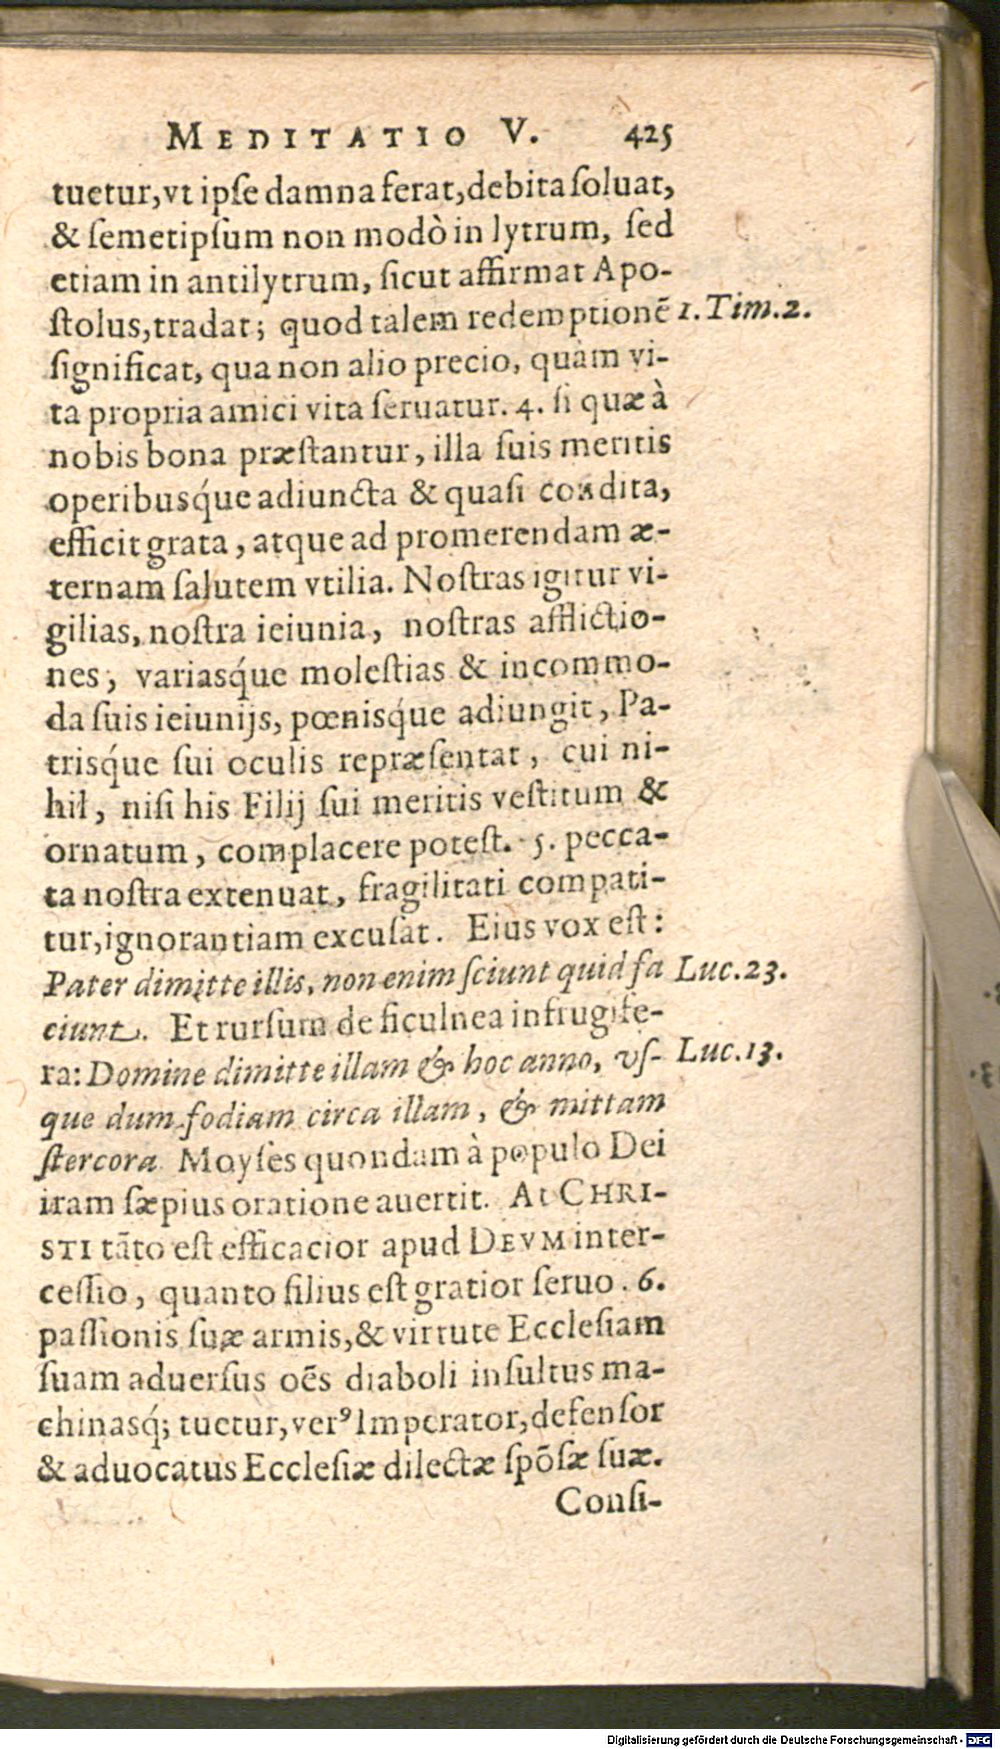 MEDITATIO V. 425
tuetur, vt ipſe damna ferat, debita ſoluat,
& ſemetipſum non modò in lytrum, ſed
etiam in antilytrum, ſicut affirmat Apo-
ſtolus, tradat; quod talem redemptionē 1. Tim. 2.
ſignificat, qua non alio precio, quàm vi-
ta propria amici vita ſeruatur. 4. ſi quæ à
nobis bona præſtantur, illa ſuis meritis
operibusq́ue adiuncta & quaſi condita,
efficit grata, atque ad promerendam æ-
ternam ſalutem vtilia. Noſtras igitur vi-
gilias, noſtra ieiunia, noſtras afflictio-
nes, variasq́ue moleſtias & incommo-
da ſuis ieiunijs, pœnisq́ue adiungit, Pa-
trisq́ue ſui oculis repræſentat, cui ni-
hil, niſi his Filij ſui meritis veſtitum &
ornatum, complacere poteſt. 5. pecca-
ta noſtra extenuat, fragilitati compati-
tur, ignorantiam excuſat. Eius vox eſt:
Pater dimitte illis, non enim ſciunt quid fa Luc. 23.
ciunt. Et rurſum de ficulnea infrugife-
ra: Domine dimitte illam & hoc anno, vſ- Luc. 13.
que dum fodiam circa illam, & mittam
ſtercora. Moyſes quondam à populo Dei
iram ſæpius oratione auertit. At CHRI-
STI tāto eſt efficacior apud DEVM inter-
ceſſio, quanto filius eſt gratior ſeruo. 6.
paſſionis ſuæ armis, & virtute Eccleſiam
ſuam aduerſus oēs diaboli inſultus ma-
chinasq́; tuetur, verꝰ Imperator, defenſor
& aduocatus Eccleſiæ dilectæ ſpōſæ ſuæ.
Conſi-
Digitalisierung gefördert durch die Deutsche Forschungsgemeinschaft - DFG